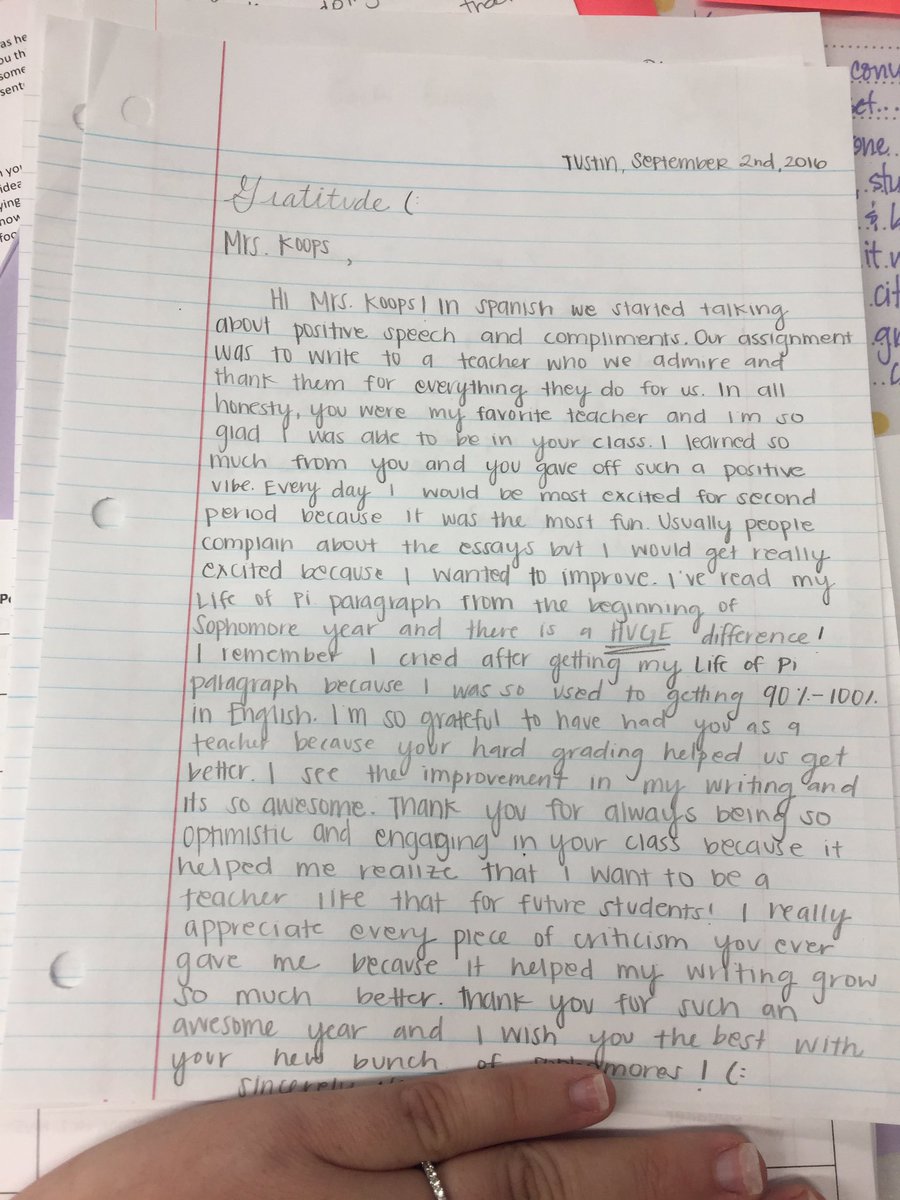 Tustin, September 2nd, 2016
Gratitude (:
Mrs. Koops,
Hi Mrs. Koops! In spanish we started talking
about positive speech and compliments. Our assignment
was to write to a teacher who we admire and
thank them for everything they do for us. In all
honesty, you were my favorite teacher and I'm so
glad I was able to be in your class. I learned so
much from you and you gave off such a positive
vibe. Every day I would be most excited for second
period because it was the most fun. Usually people
complain about the essays but I would get really
excited because I wanted to improve. I've read my
Life of Pi paragraph from the beginning of
Sophomore year and there is a HUGE difference!
I remember I cried after getting my Life of Pi
paragraph because I was so used to getting 90%-100%
in English. I'm so grateful to have had you as a
teacher because your hard grading helped us get
better. I see the improvement in my writing and
its so awesome. Thank you for always being so
optimistic and engaging in your class because it
helped me realize that I want to be a
teacher like that for future students! I really
appreciate every piece of criticism you ever
gave me because it helped my writing grow
so much better. Thank you for such an
awesome year and I wish you the best with
your new bunch of mores! (:
sincerely
as he
ou th
some
sent
you
idea
ying
now
foo
conv
et...
one..
.stu
& .
it.
.cit
.gr